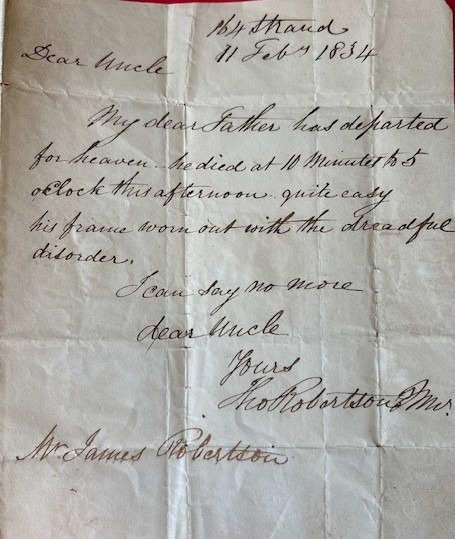 164 Strand
11 Feby 1834
Dear Uncle
My dear Father has departed
for heaven. he died at 10 Minutes to 5
oClock this afternoon quite easy
his frame worn out with the dreadful
disorder.
I can say no more
Dear Uncle
Yours
Tho Robertson
Mr. James Robertson